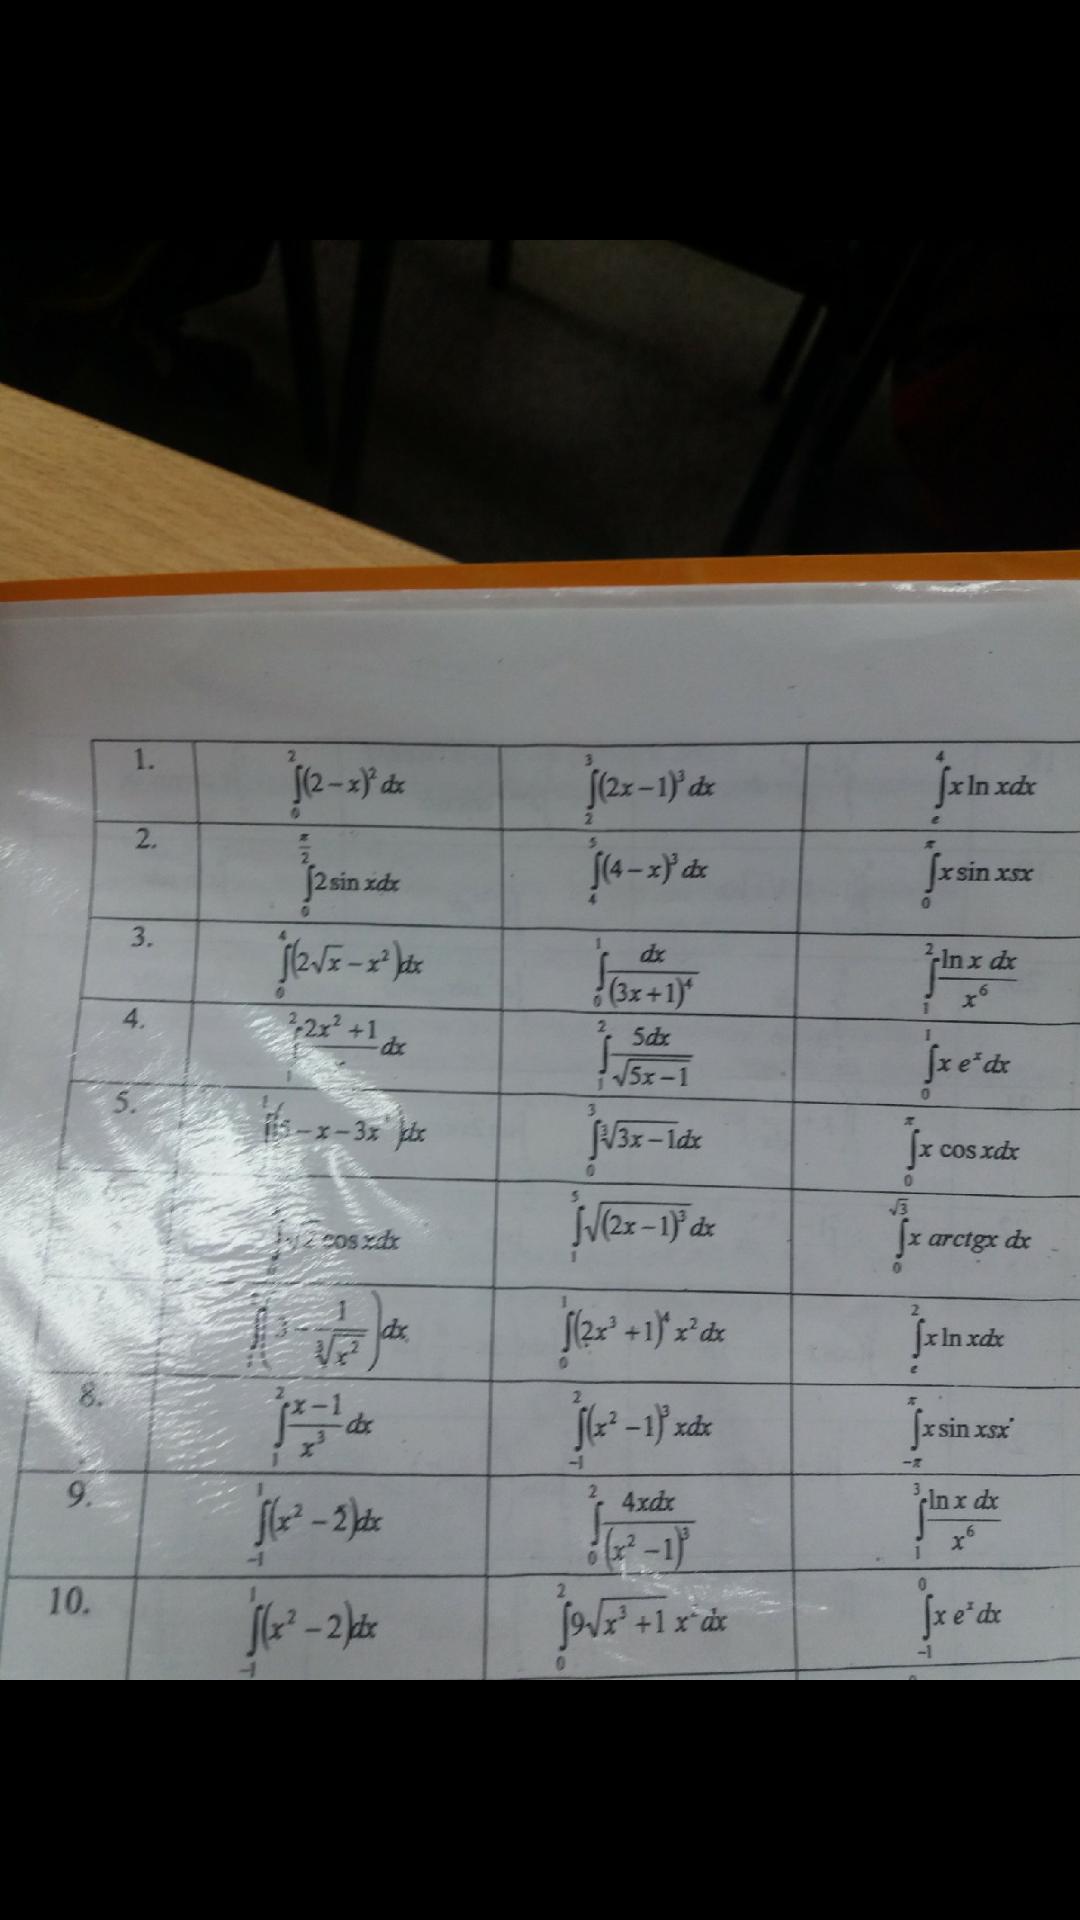 1. ∫₀² (2 − x)² dx ∫₂³ (2x − 1)³ dx ∫ₑ⁴ x ln xdx
2. ∫₀^(π/2) 2 sin xdx ∫₄⁵ (4 − x)³ dx ∫₀^π x sin xsx
3. ∫₀⁴ (2√x − x²)dx ∫₀¹ dx/(3x+1)⁴ ∫₁² ln x dx/x⁶
4. ∫₁² 2x² +1 dx ∫₁² 5dx/√(5x−1) ∫₀¹ x eˣ dx
5. − x − 3x dx ∫₀³ ∛(3x−1)dx ∫₀^π x cos xdx
cos xdx ∫₁⁵ √((2x−1)³) dx ∫₀^√3 x arctgx dx
3 − 1/∛(x²)) dx ∫₀¹ (2x³ +1)⁴ x² dx ∫ₑ² x ln xdx
8. ∫₁² (x−1)/x³ dx ∫₋₁² (x² −1)³ xdx ∫₋π^π x sin xsx
9. ∫₋₁¹ (x² − 2)dx ∫₀² 4xdx/(x² −1)³ ∫₁³ ln x dx/x⁶
10. ∫₋₁¹ (x² − 2)dx ∫₀² 9√(x³ +1) x² dx ∫₋₁⁰ x eˣ dx